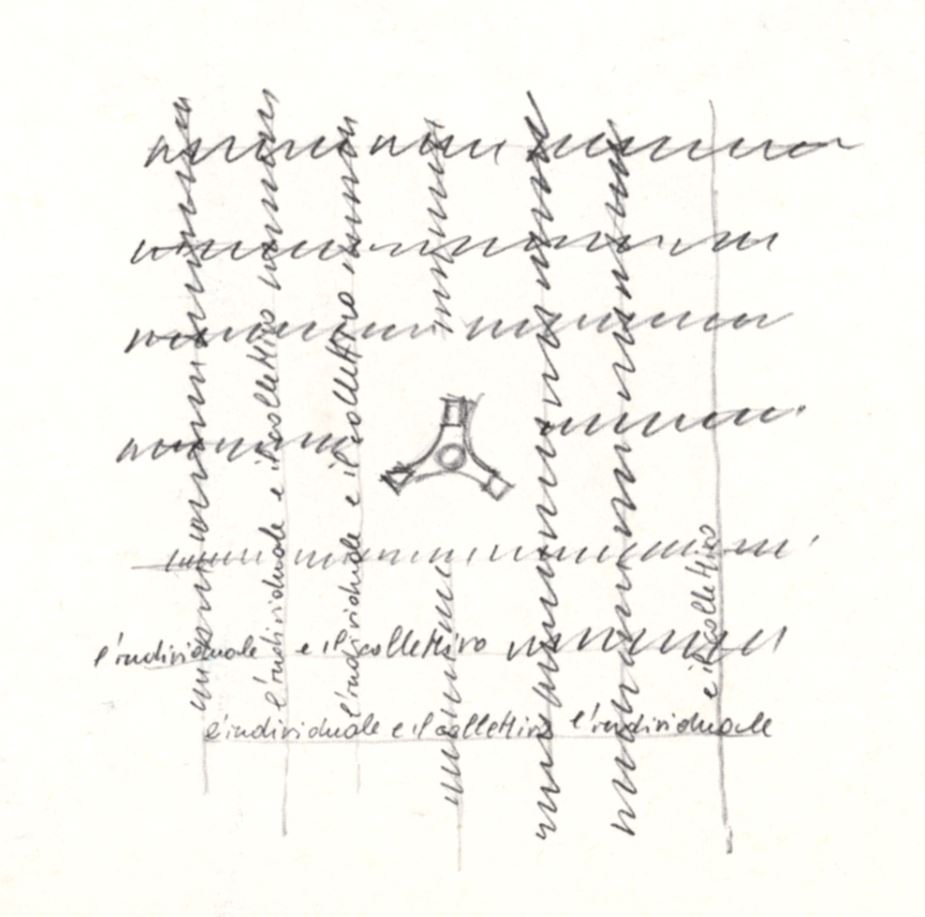 l'individuale e il collettivo
l'individuale e il collettivo l'individuale
l'individuale e il collettivo
l'individuale e il collettivo
e il collettivo